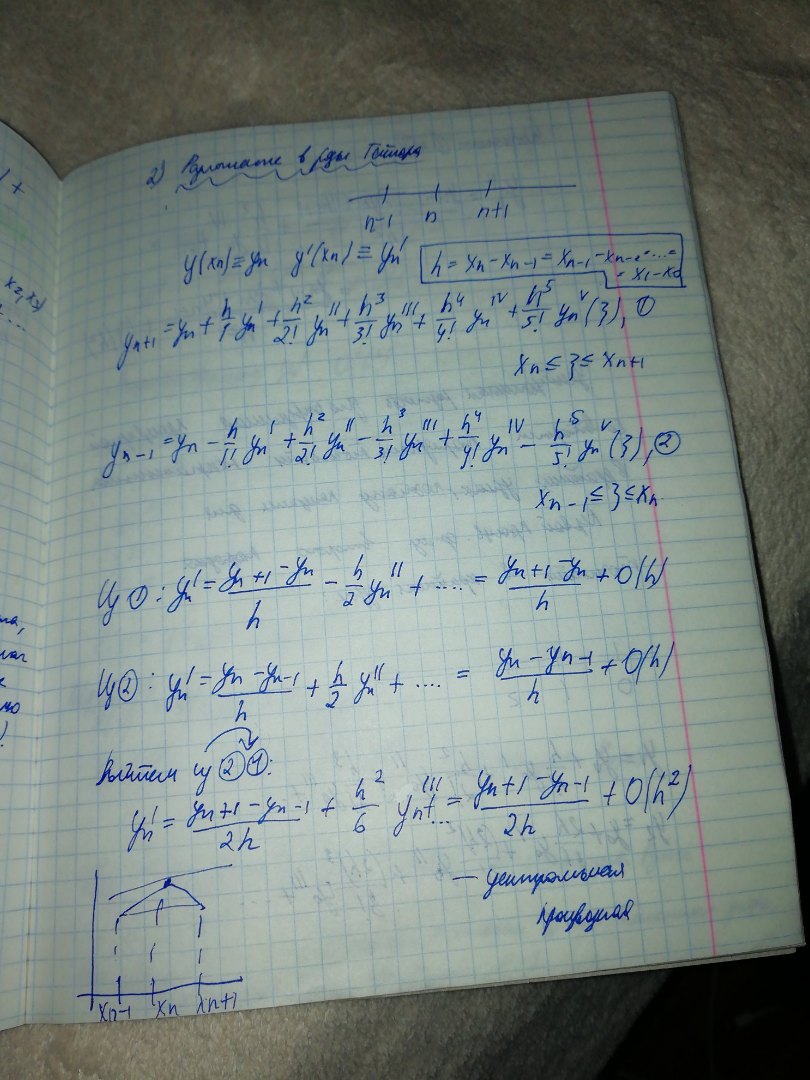 2) Разложение в ряды Тейлора
n-1 n n+1
y(xn) ≡ yn y'(xn) ≡ yn' h = xn - xn-1 = xn-1 - xn-2 = .... =
= x1 - x0
yn+1 = yn + h/1 yn' + h²/2! yn'' + h³/3! yn''' + h⁴/4! yn^IV + h⁵/5! yn^V (ξ), ①
xn ≤ ξ ≤ xn+1
yn-1 = yn - h/1! yn' + h²/2! yn'' - h³/3! yn''' + h⁴/4! yn^IV - h⁵/5! yn^V (ξ), ②
xn-1 ≤ ξ ≤ xn
Из ①: yn' = (yn+1 - yn)/h - h/2 yn'' + .... = (yn+1 - yn)/h + O(h)
Из ②: yn' = (yn - yn-1)/h + h/2 yn'' + .... = (yn - yn-1)/h + O(h)
Вычтем из ② ①:
yn' = (yn+1 - yn-1)/2h + h²/6 yn''' + ... = (yn+1 - yn-1)/2h + O(h²)
— центральная
производная
xn-1 xn xn+1